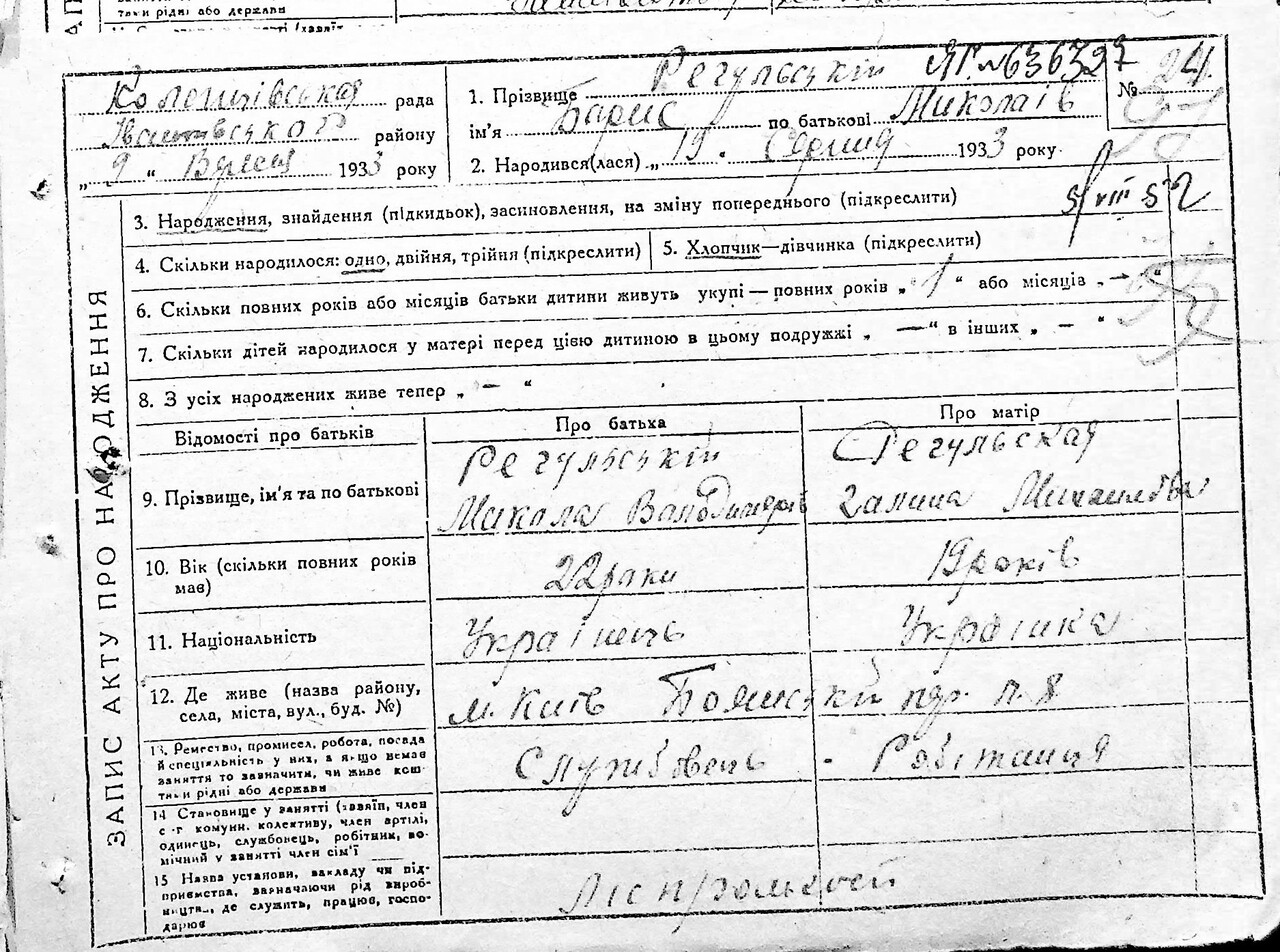 таки рідні або держави
Коленцівська рада
району
„ 9 " Вересня 1933 року
1. Прізвище Регульській ЯГ №636327
ім'я Барис по батькові Миколаїв
2. Народився(лася) „ 19 " Серпня 1933 року
№ 24
5/VIII 52
3. Народження, знайдення (підкидьок), засиновлення, на зміну попереднього (підкреслити)
4. Скільки народилося: одно, двійня, трійня (підкреслити)
5. Хлопчик—дівчинка (підкреслити)
6. Скільки повних років або місяців батьки дитини живуть укупі — повних років „ 1 " або місяців „ — "
7. Скільки дітей народилося у матері перед цією дитиною в цьому подружжі „ — " в інших „ — "
8. З усіх народжених живе тепер „ — "
ЗАПИС АКТУ ПРО НАРОДЖЕННЯ
Відомості про батьків
Про батька
Про матір
9. Прізвище, ім'я та по батькові
Регульській
Микола Володимерів
Регульская
Галина Михаилівна
10. Вік (скільки повних років
мав)
22 роки
19 років
11. Національність
Українець
Українка
12. Де живе (назва району,
села, міста, вул., буд. №)
м. Київ
13. Ремество, промисел, робота, посада
й спеціяльність у них, а якщо немає
заняття то зазначити, чи живе кош-
таки рідні або держави
Службовець - Робітниця
14 Становище у занятті (хазяїн, член
с -г комуни, колективу, член артілі,
одинець, службонець, робітник, по-
мічний у занятті член сім'ї
15 Назва установи, закладу чи під-
приємства, зазначаючи рід вироб-
ництва, де служить, працює, госпо-
дарює